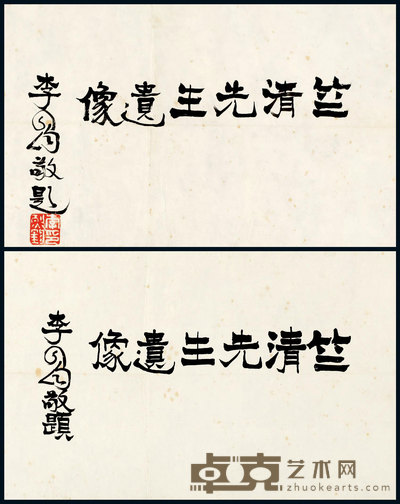 竺清先生遺像
李敬題
竺清先生遺像
李敬題
卓克艺术网
zhuokearts.com